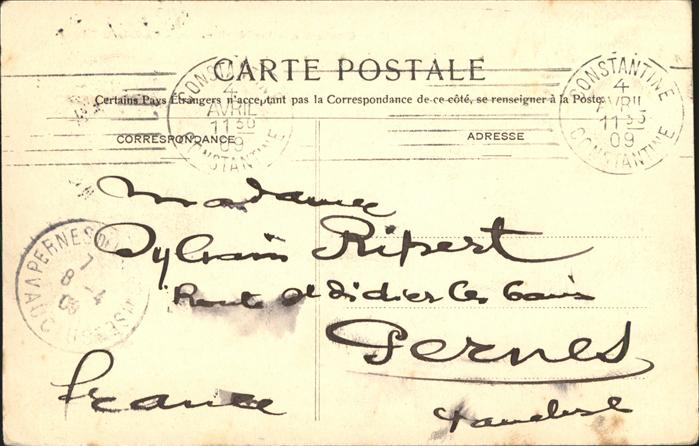 CARTE POSTALE
Certains Pays Étrangers n'acceptant pas la Correspondance de ce côté, se renseigner à la Poste.
CONSTANTINE
4
AVRIL
11 35
09
CONSTANTINE
CONSTANTINE
4
AVRIL
11 35
09
CONSTANTINE
CORRESPONDANCE
ADRESSE
Madame
Sylvain Ripert
Route St Didier les bains
Pernes
Vaucluse
France
PERNES
7
8 -4
09
VAUCLUSE